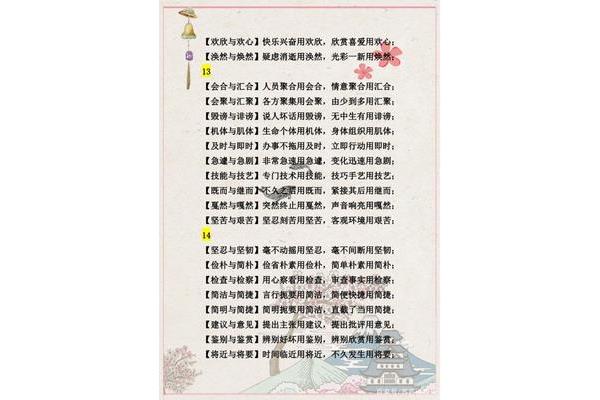 【欢欣与欢心】快乐兴奋用欢欣，欣赏喜爱用欢心；
【涣然与焕然】疑虑消逝用涣然，光彩一新用焕然；
13
【会合与汇合】人员聚合用会合，情意聚合用汇合；
【会聚与汇聚】各方聚集用会聚，由少到多用汇聚；
【毁谤与诽谤】说人坏话用毁谤，无中生有用诽谤；
【机体与肌体】生命个体用机体，身体组织用肌体；
【及时与即时】办事不拖用及时，立即行动用即时；
【急遽与急剧】非常急速用急遽，变化迅速用急剧；
【技能与技艺】专门技术用技能，技巧手艺用技艺；
【既而与继而】不久之后用既而，紧接其后用继而；
【戛然与嘎然】突然终止用戛然，声音响亮用嘎然；
【坚苦与艰苦】坚忍刻苦用坚苦，客观环境用艰苦；
14
【坚忍与坚韧】毫不动摇用坚忍，毫不间断用坚韧；
【俭朴与简朴】俭省朴素用俭朴，简单朴素用简朴；
【检查与检察】用心察看用检查，审查事实用检察；
【简洁与简捷】言行扼要用简洁，简便快捷用简捷；
【简明与简捷】简明扼要用简明，直截了当用简捷；
【建议与意见】提出主张用建议，提出批评用意见；
【鉴别与鉴赏】辨别好坏用鉴别，辨别欣赏用鉴赏；
【将近与将要】时间临近用将近，不久发生用将要；